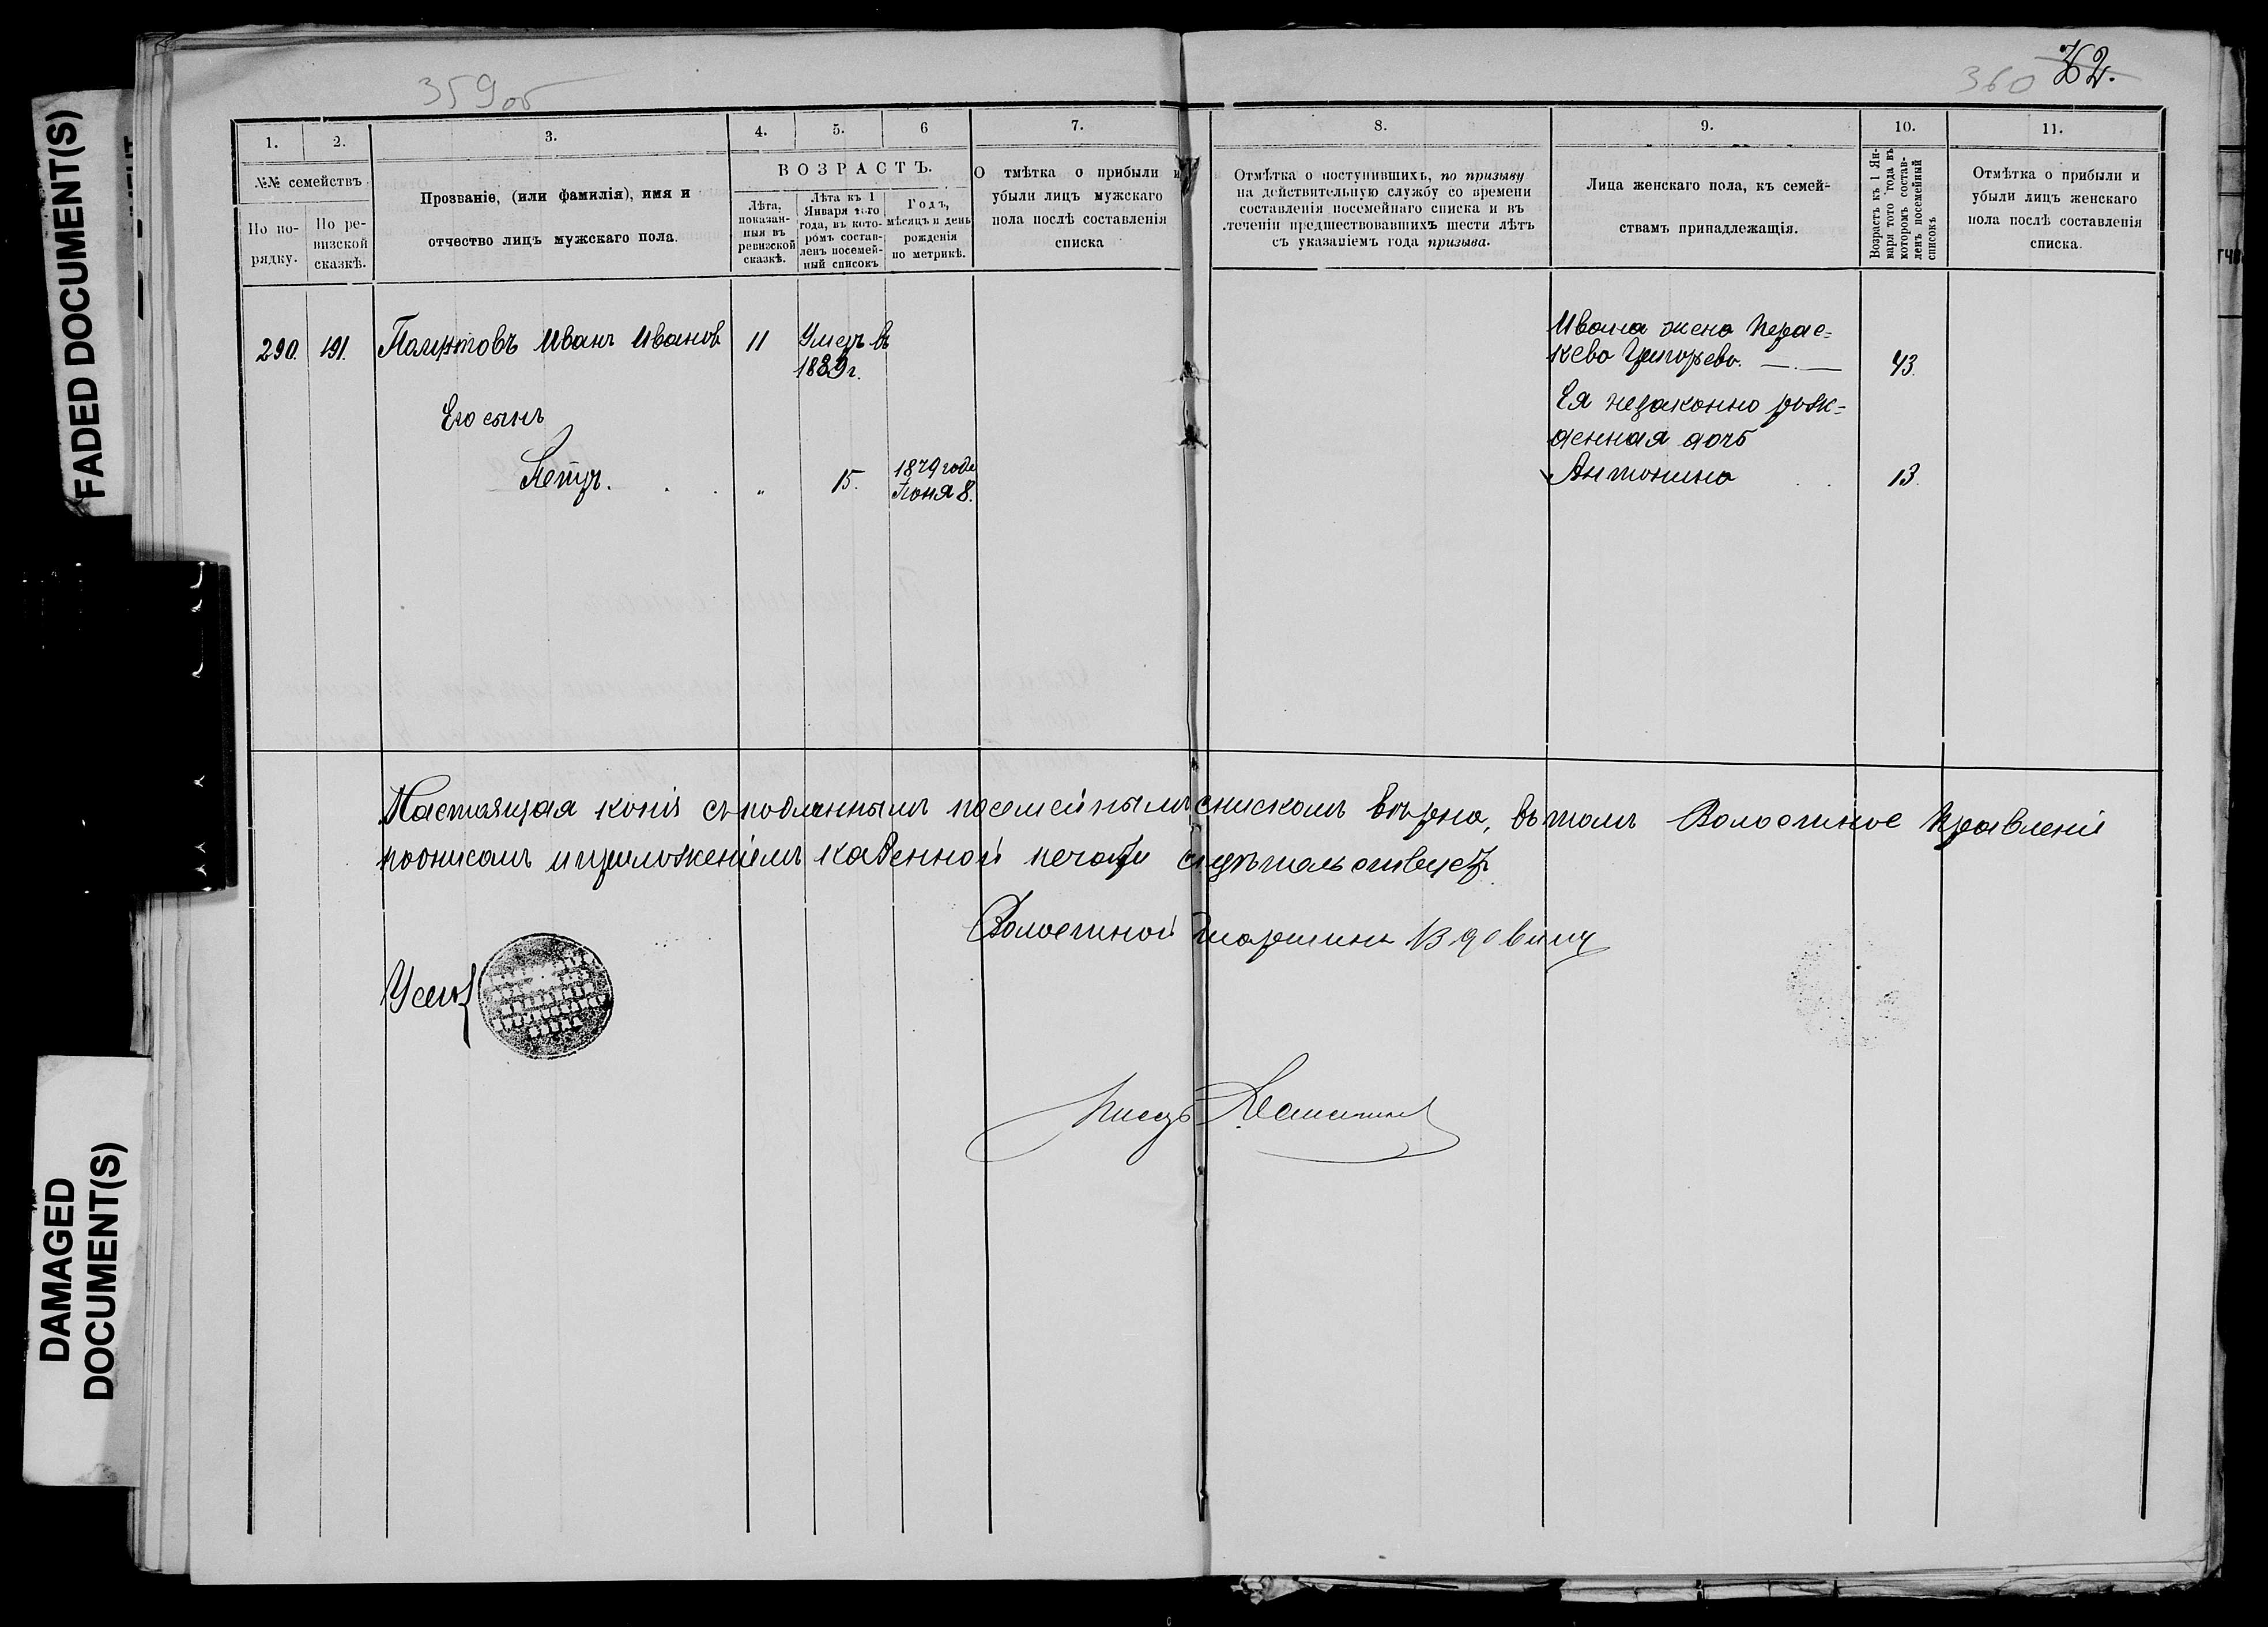 FADED DOCUMENT(S)
DAMAGED
DOCUMENT(S)
359об
360 32.
1.
2.
3.
4.
5.
6
7.
8.
9.
10.
11.
№№ семействъ
По по-
рядку.
По ре-
визской
сказкѣ.
Прозваніе, (или фамилія), имя и
отчество лицъ мужскаго пола.
ВОЗРАСТЪ.
Лѣта,
показан-
ныя въ
ревизской
сказкѣ.
Лѣта къ 1
Января того
года, въ кото-
ромъ состав-
ленъ посемей-
ный списокъ
Годъ,
мѣсяцъ и день
рожденія
по метрикѣ.
О тмѣтка о прибыли и
убыли лицъ мужскаго
пола послѣ составленія
списка
Отмѣтка о поступившихъ, по призыву
на дѣйствительную службу со времени
составленія посемейнаго списка и въ
теченіи предшествовавшихъ шести лѣтъ
съ указаніемъ года призыва.
Лица женскаго пола, къ семей-
ствамъ принадлежащія.
Возрастъ къ 1 Ян-
варя того года въ
которомъ состав-
ленъ посемейный
списокъ
Отмѣтка о прибыли и
убыли лицъ женскаго
пола послѣ составленія
списка.
290. 191. Иванъ Ивановъ 11 Умеръ въ
1889 г.
Его сынъ
Петръ. . . „ 15. 1879 года
Іюня 8.
Ивана жена Парас-
кева Григорьева. 43.
Ея незаконно рож-
денная дочь
Антонина 13.
Настоящая копія съ подлиннымъ посемейнымъ спискомъ вѣрна, въ томъ Волостное Правленіе
подписомъ и приложеніемъ казенной печати свидѣтельствуетъ.
Волостной Старшина Вдовинъ
Писарь